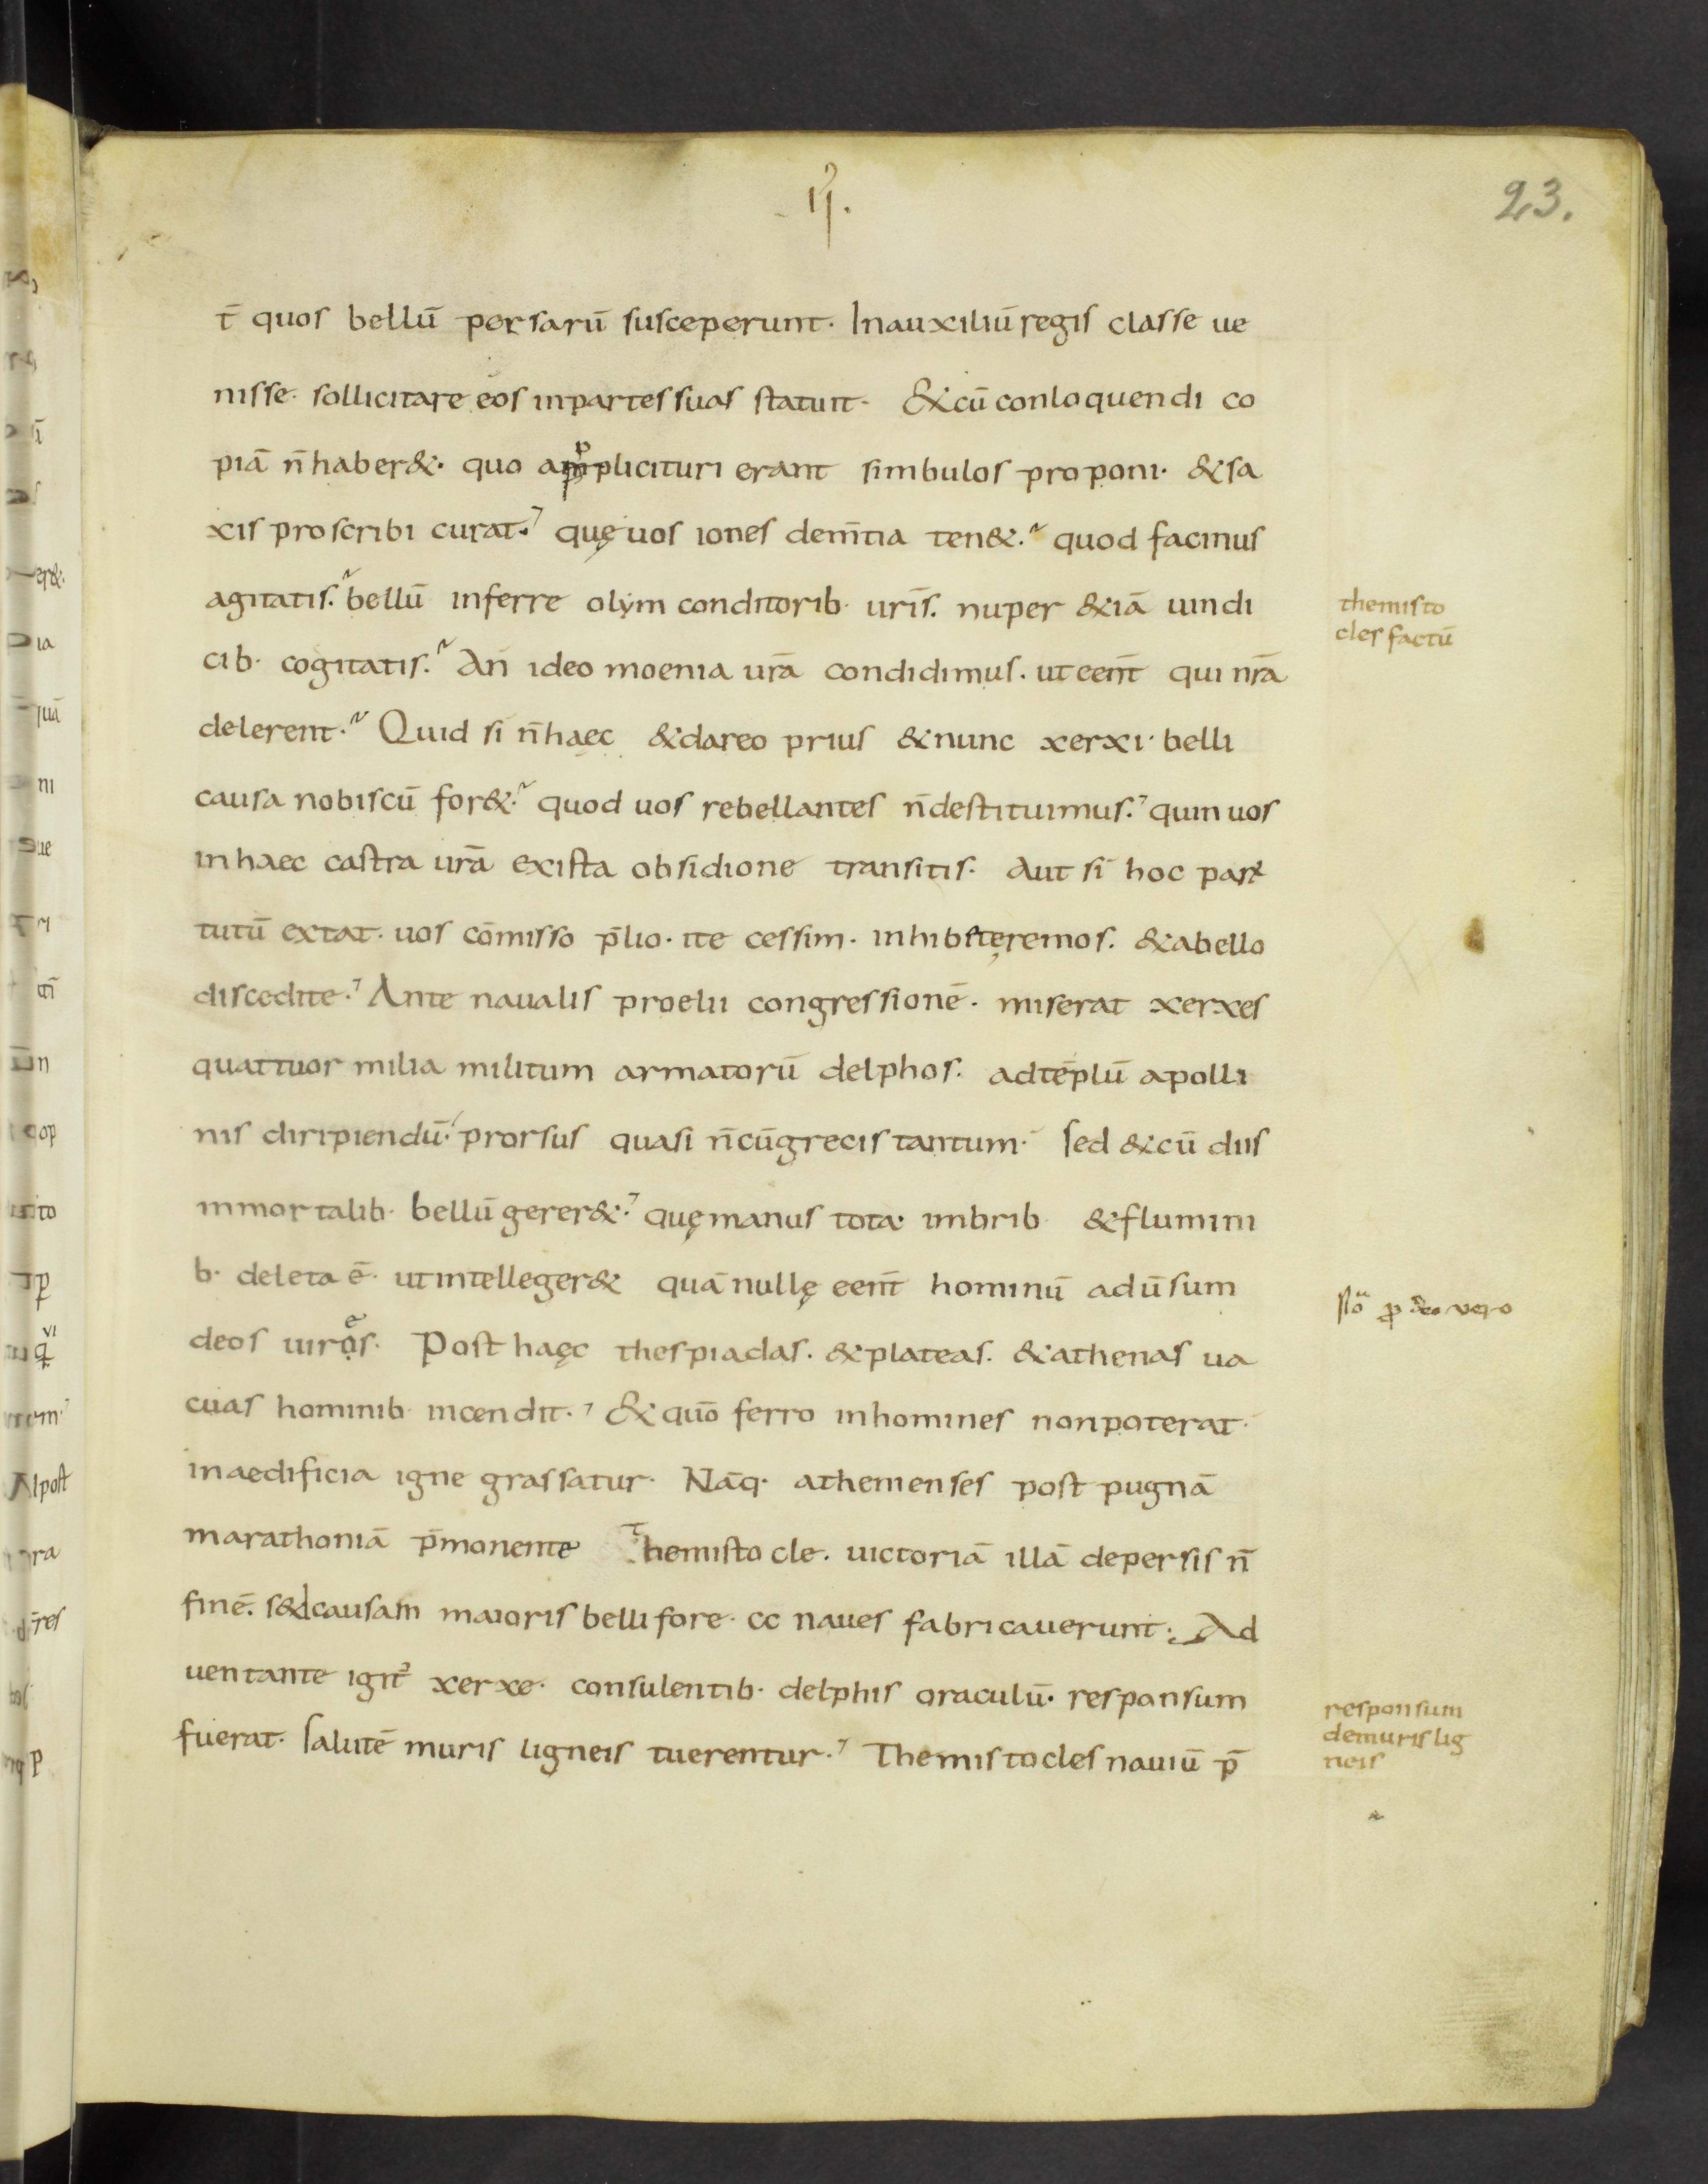 .ij.
23.
t̄ quos bellū persarū susceperunt. Inauxiliū regis classe ue
nisse. sollicitare eos inpartes suas statuit. & cū conloquendi co
piā n̄ haber&. quo applicituri erant simbulos proponi. & sa
xis proscribi curat. quę uos iones dem̄tia ten&. quod facinus
agitatis. bellū inferre olym conditorib. ur̄is. nuper &iā uindi
cib. cogitatis. An̄ ideo moenia ur̄a condidimus. ut een̄t qui nr̄a
delerent. Quid si n̄ haec & dareo prius & nunc xerxi. belli
causa nobiscū for&. quod uos rebellantes n̄ destituimus. quin uos
in haec castra ur̄a ex ista obsidione transitis. Aut si hoc par
tutū extat. uos cōmisso p̄lio. ite cessim. inhibete remos. & abello
discedite. Ante naualis proelii congressionē. miserat xerxes
quattuor milia militum armatorū delphos. ad tēplū apolli
nis diripiendū. prorsus quasi n̄ cū grecis tantum. sed & cū diis
inmortalib. bellū gerer&. quę manus tota imbrib. & flumini
b. deleta ē. ut intelleger& quā nullę een̄t hominū aduersum
deos uires. Post haęc thespiadas. & plateas. & athenas ua
cuas hominib. incendit. & quō ferro in homines non poterat.
inaedificia igne grassatur. Nāq. athenienses post pugnā
marathoniā p̄monente Themistocle. uictoriā illā de persis n̄
finē. sed causam maioris belli fore. cc naues fabricauerunt. Ad
uentante igit xerxe. consulentib. delphis oraculū. responsum
fuerat. salutē muris ligneis tuerentur. Themistocles nauiū p̄
themisto
cles factū
pro deo vero
responsum
de muris lig
neis